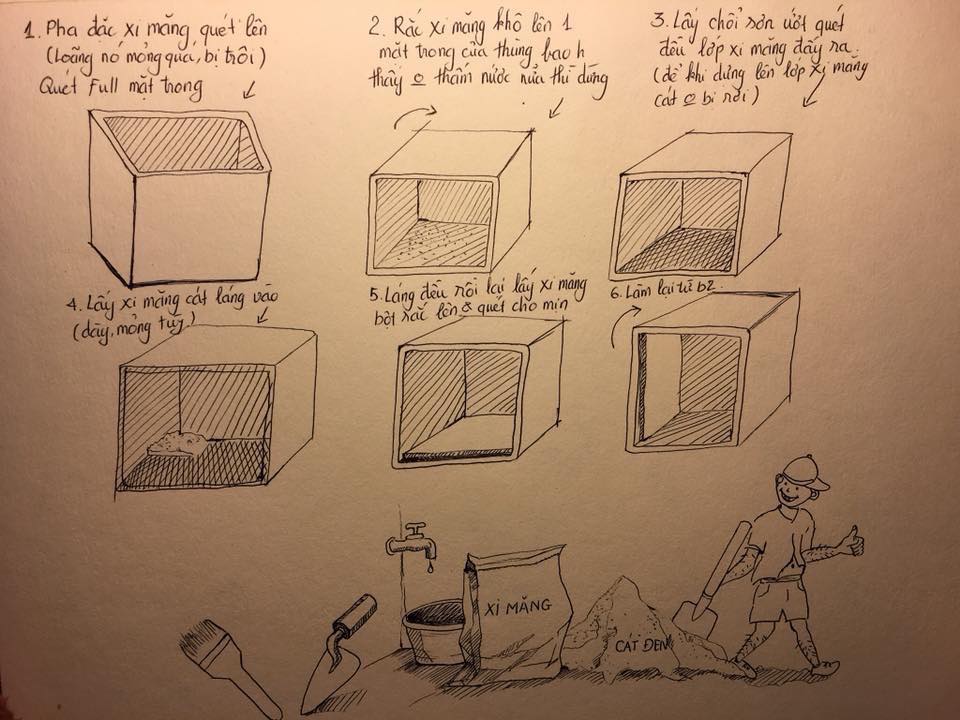 1. Pha đặc xi măng quét lên
(Loãng nó mỏng quá, bị trôi)
Quét Full mặt trong
2. Rắc xi măng khô lên 1
mặt trong của thùng bao h
thấy o thấm nước nữa thì dừng
3. Lấy chổi sơn ướt quét
đều lớp xi măng đấy ra.
(để khi dựng lên lớp xi măng
cát o bị rơi)
4. Lấy xi măng cát láng vào
(dày, mỏng tùy)
5. Láng đều rồi lại lấy xi măng
bột rắc lên & quét cho mịn
6. Làm lại từ b2
XI MĂNG
CÁT ĐEN